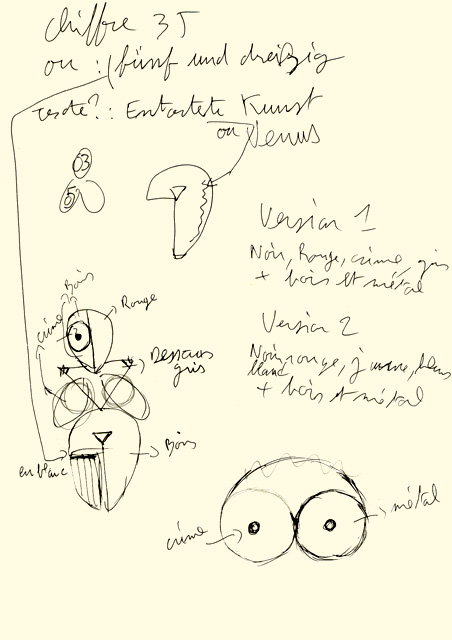 chiffre 35
ou : fünf und dreißig
texte? : Entartete Kunst
ou Venus
03
5
Version 1
Noir, Rouge, crème, gris
+ bois et métal
Bois
crème
Rouge
Version 2
Noir, rouge, jaune, bleu
blanc
+ bois et métal
Dessous
gris
Bois
en blanc
crème
métal